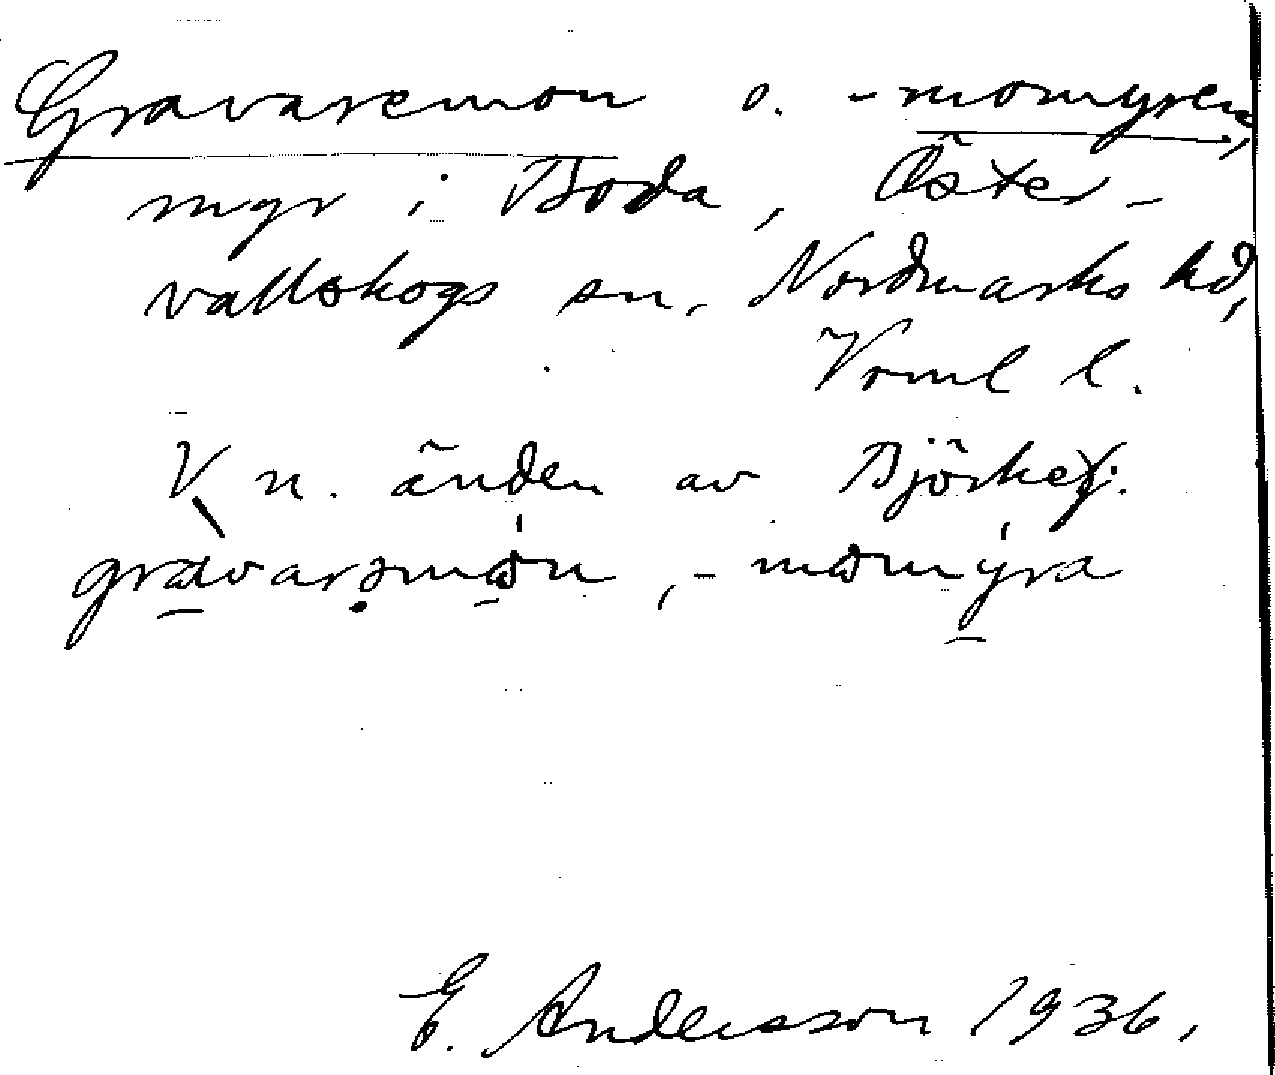 Gravaremon o. -momyren,
myr i Boda, Öster-
vallskogs sn, Nordmarks hd,
Vrml l.
V n. änden av Björkef.
gravarsmon, -momyra
E. Andersson 1936.